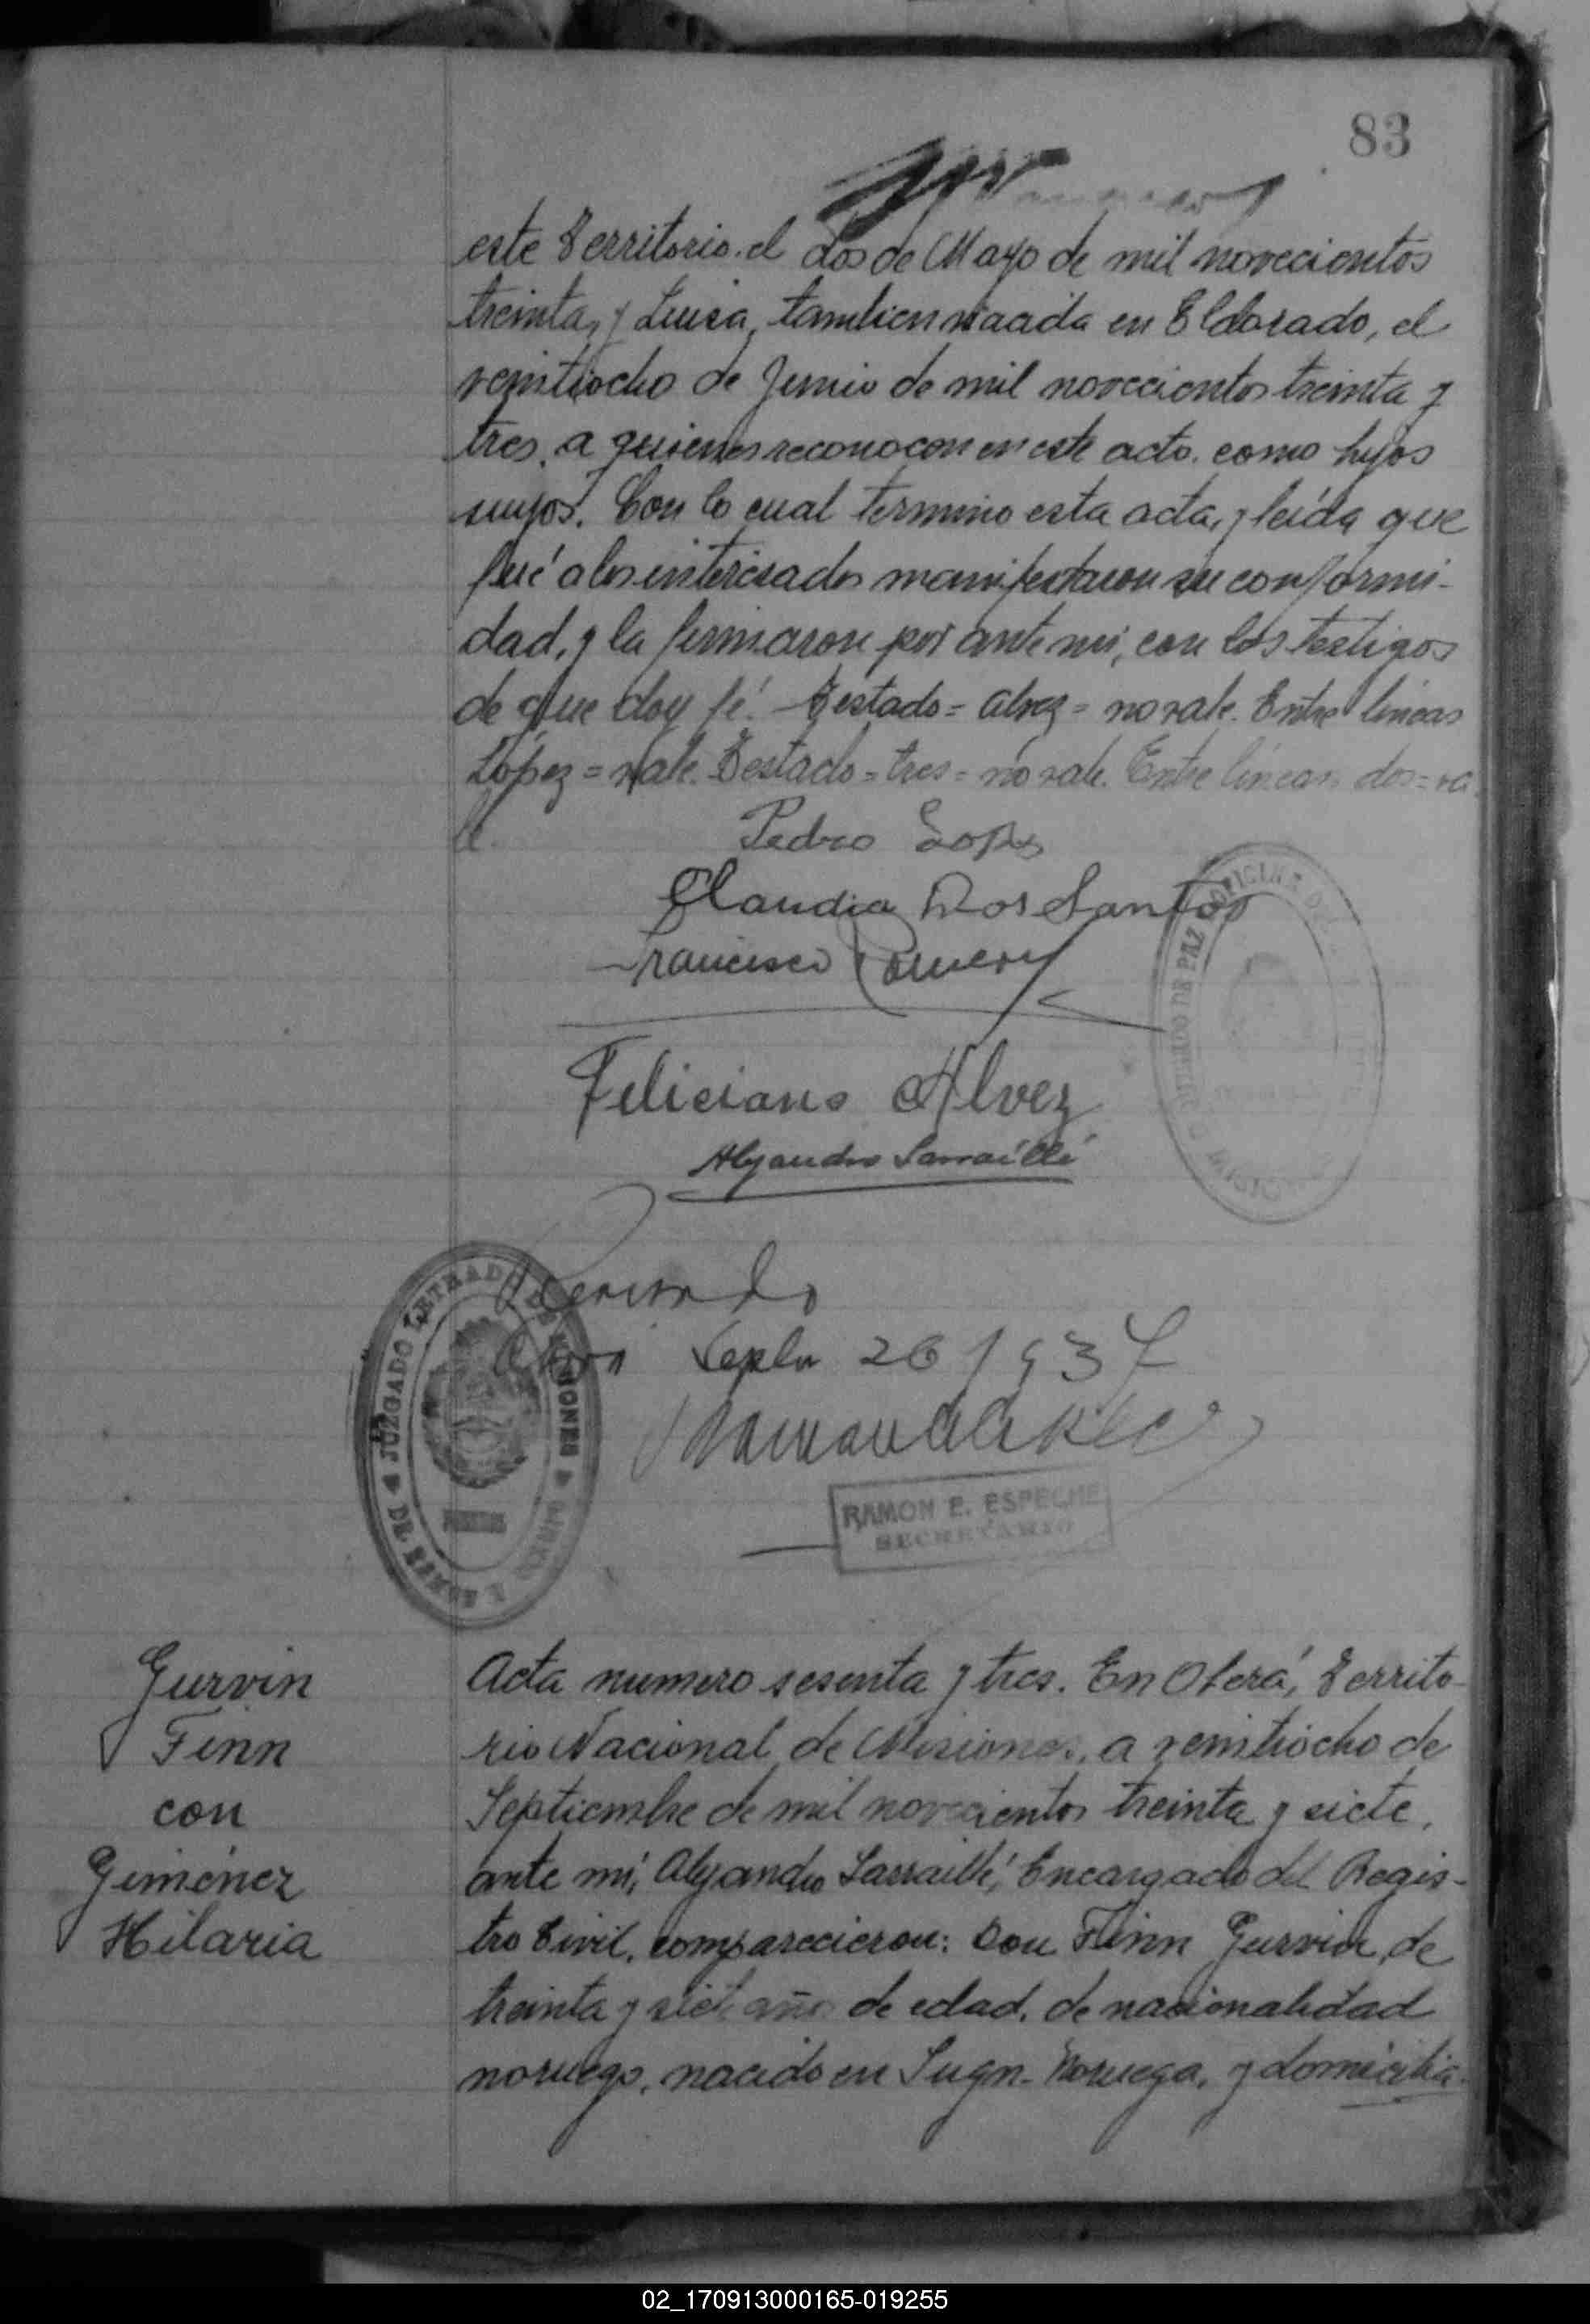 83
este Territorio. el dos de Mayo de mil novecientos
treinta, y Luisa, tambien naacida en Eldorado, el
veintiocho de Junio de mil novecientos treinta y
tres, a quienes reconocen en este acto. como hijos
suyos. Con lo cual termino esta acta, y leída que
fué a los interesados manifestaron su conformi-
dad, y la firmaron por ante mi, con los testigos
de que doy fé. Testado = Alvez = no vale. Entre lineas
López = vale. Testado = tres = no vale. Entre líneas dos = va
le.
Pedro Lopes
Claudia Dos Santos
Francisco
Feliciano Alvez
Alejandro Sarraillé
JUZGADO DE PAZ OFICINA DE
MISIONES
Revisado
Septbr 26 1937
JUZGADO LETRADO DE MISIONES
RAMON E. ESPECHE
SECRETARIO
Gurvin
Finn
con
Giménez
Hilaria
Acta numero sesenta y tres. En Oberá, Territo-
rio Nacional de Misiones, a veintiocho de
Septiembre de mil novecientos treinta y siete,
ante mí, Alejandro Sarraillé, Encargado del Regis-
tro Civil, comparecieron: Don Finn Gurvin, de
treinta y siete años de edad, de nacionalidad
noruego, nacido en Sugn- Noruega, y domicilia-
02_170913000165-019255